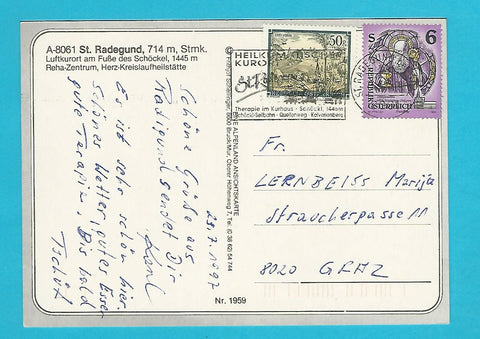 A-8061 St. Radegund, 714 m, Stmk.
Luftkurort am Fuße des Schöckel, 1445 m
Reha-Zentrum, Herz-Kreislaufheilstätte
23.7.1997
Schöne Grüße aus
Radegund sendet Dir
Karl
Es ist sehr schön hier.
Schönes Wetter, gutes Essen
gute Terapien, Bis bald
Tschüß
Nr. 1959
ALPENLAND ANSICHTSKARTE
8600 Bruck/Mur, Oberer Höhenweg 7, Tel. (0 38 62) 54 744
HEILKLIMATISCHER
KURORT
Therapie im Kurhaus · Schöckl, 1445m
Schöckl-Seilbahn · Quellenweg · Kalvarienberg
50g
S 6
ÖSTERREICH
Fr.
LERNBEISS Marija
Straucherpasse 11
8020 GRAZ